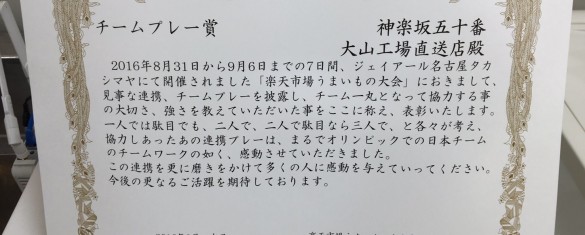 チームプレー賞
神楽坂五十番
大山工場直送店殿
2016年8月31日から9月6日までの7日間、ジェイアール名古屋タカ
シマヤにて開催されました「楽天市場うまいもの大会」におきまして、
見事な連携、チームプレーを披露し、チーム一丸となって協力する事
の大切さ、強さを教えていただいた事をここに称え、表彰いたします。
一人では駄目でも、二人で、二人で駄目なら三人で、と各々が考え、
協力しあったあの連携プレーは、まるでオリンピックでの日本チーム
のチームワークの如く、感動させていただきました。
この連携を更に磨きをかけて多くの人に感動を与えていってください。
今後の更なるご活躍を期待しております。